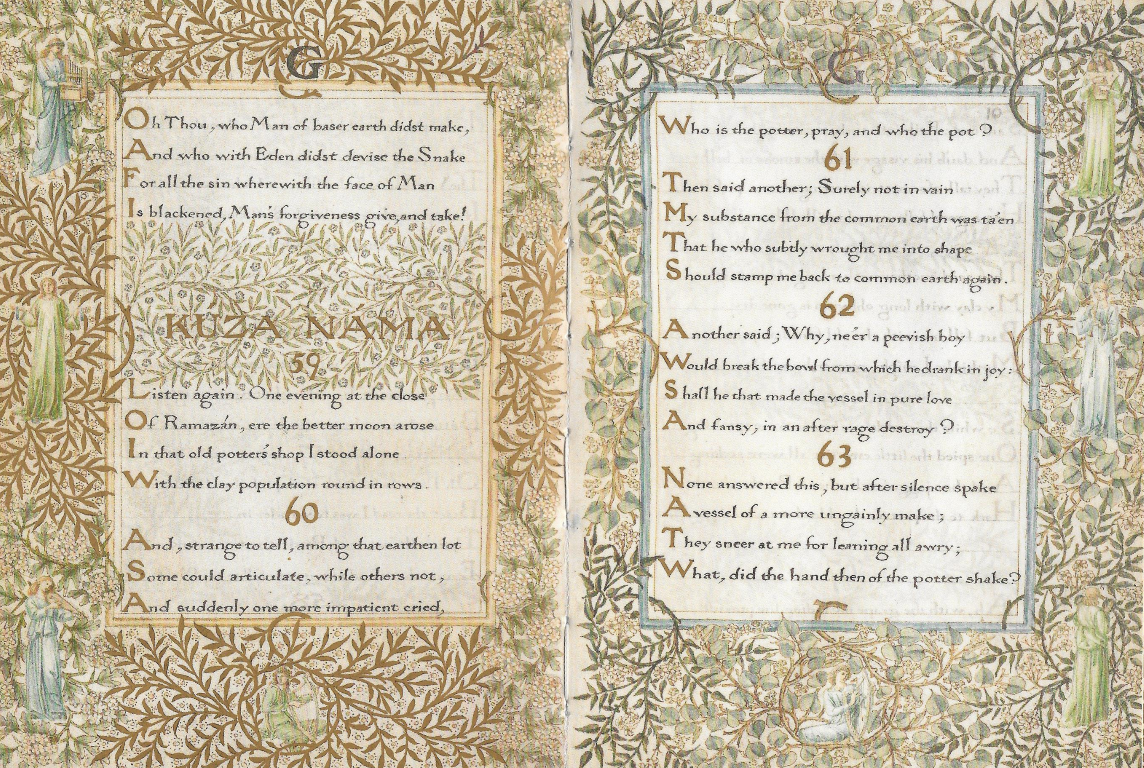 G
Oh Thou, who Man of baser earth didst make,
And who with Eden didst devise the Snake
For all the sin wherewith the face of Man
Is blackened, Man's forgiveness give, and take!
KUZA NAMA
59
Listen again. One evening at the close
Of Ramazán, ere the better moon arose
In that old potter's shop I stood alone
With the clay population round in rows.
60
And, strange to tell, among that earthen lot
Some could articulate, while others not,
And suddenly one more impatient cried,
G
Who is the potter, pray, and who the pot?
61
Then said another; Surely not in vain
My substance from the common earth was ta'en
That he who subtly wrought me into shape
Should stamp me back to common earth again.
62
Another said; Why, ne'er a peevish boy
Would break the bowl from which he drank in joy:
Shall he that made the vessel in pure love
And fansy, in an after rage destroy?
63
None answered this, but after silence spake
A vessel of a more ungainly make;
They sneer at me for leaning all awry;
What, did the hand then of the potter shake?